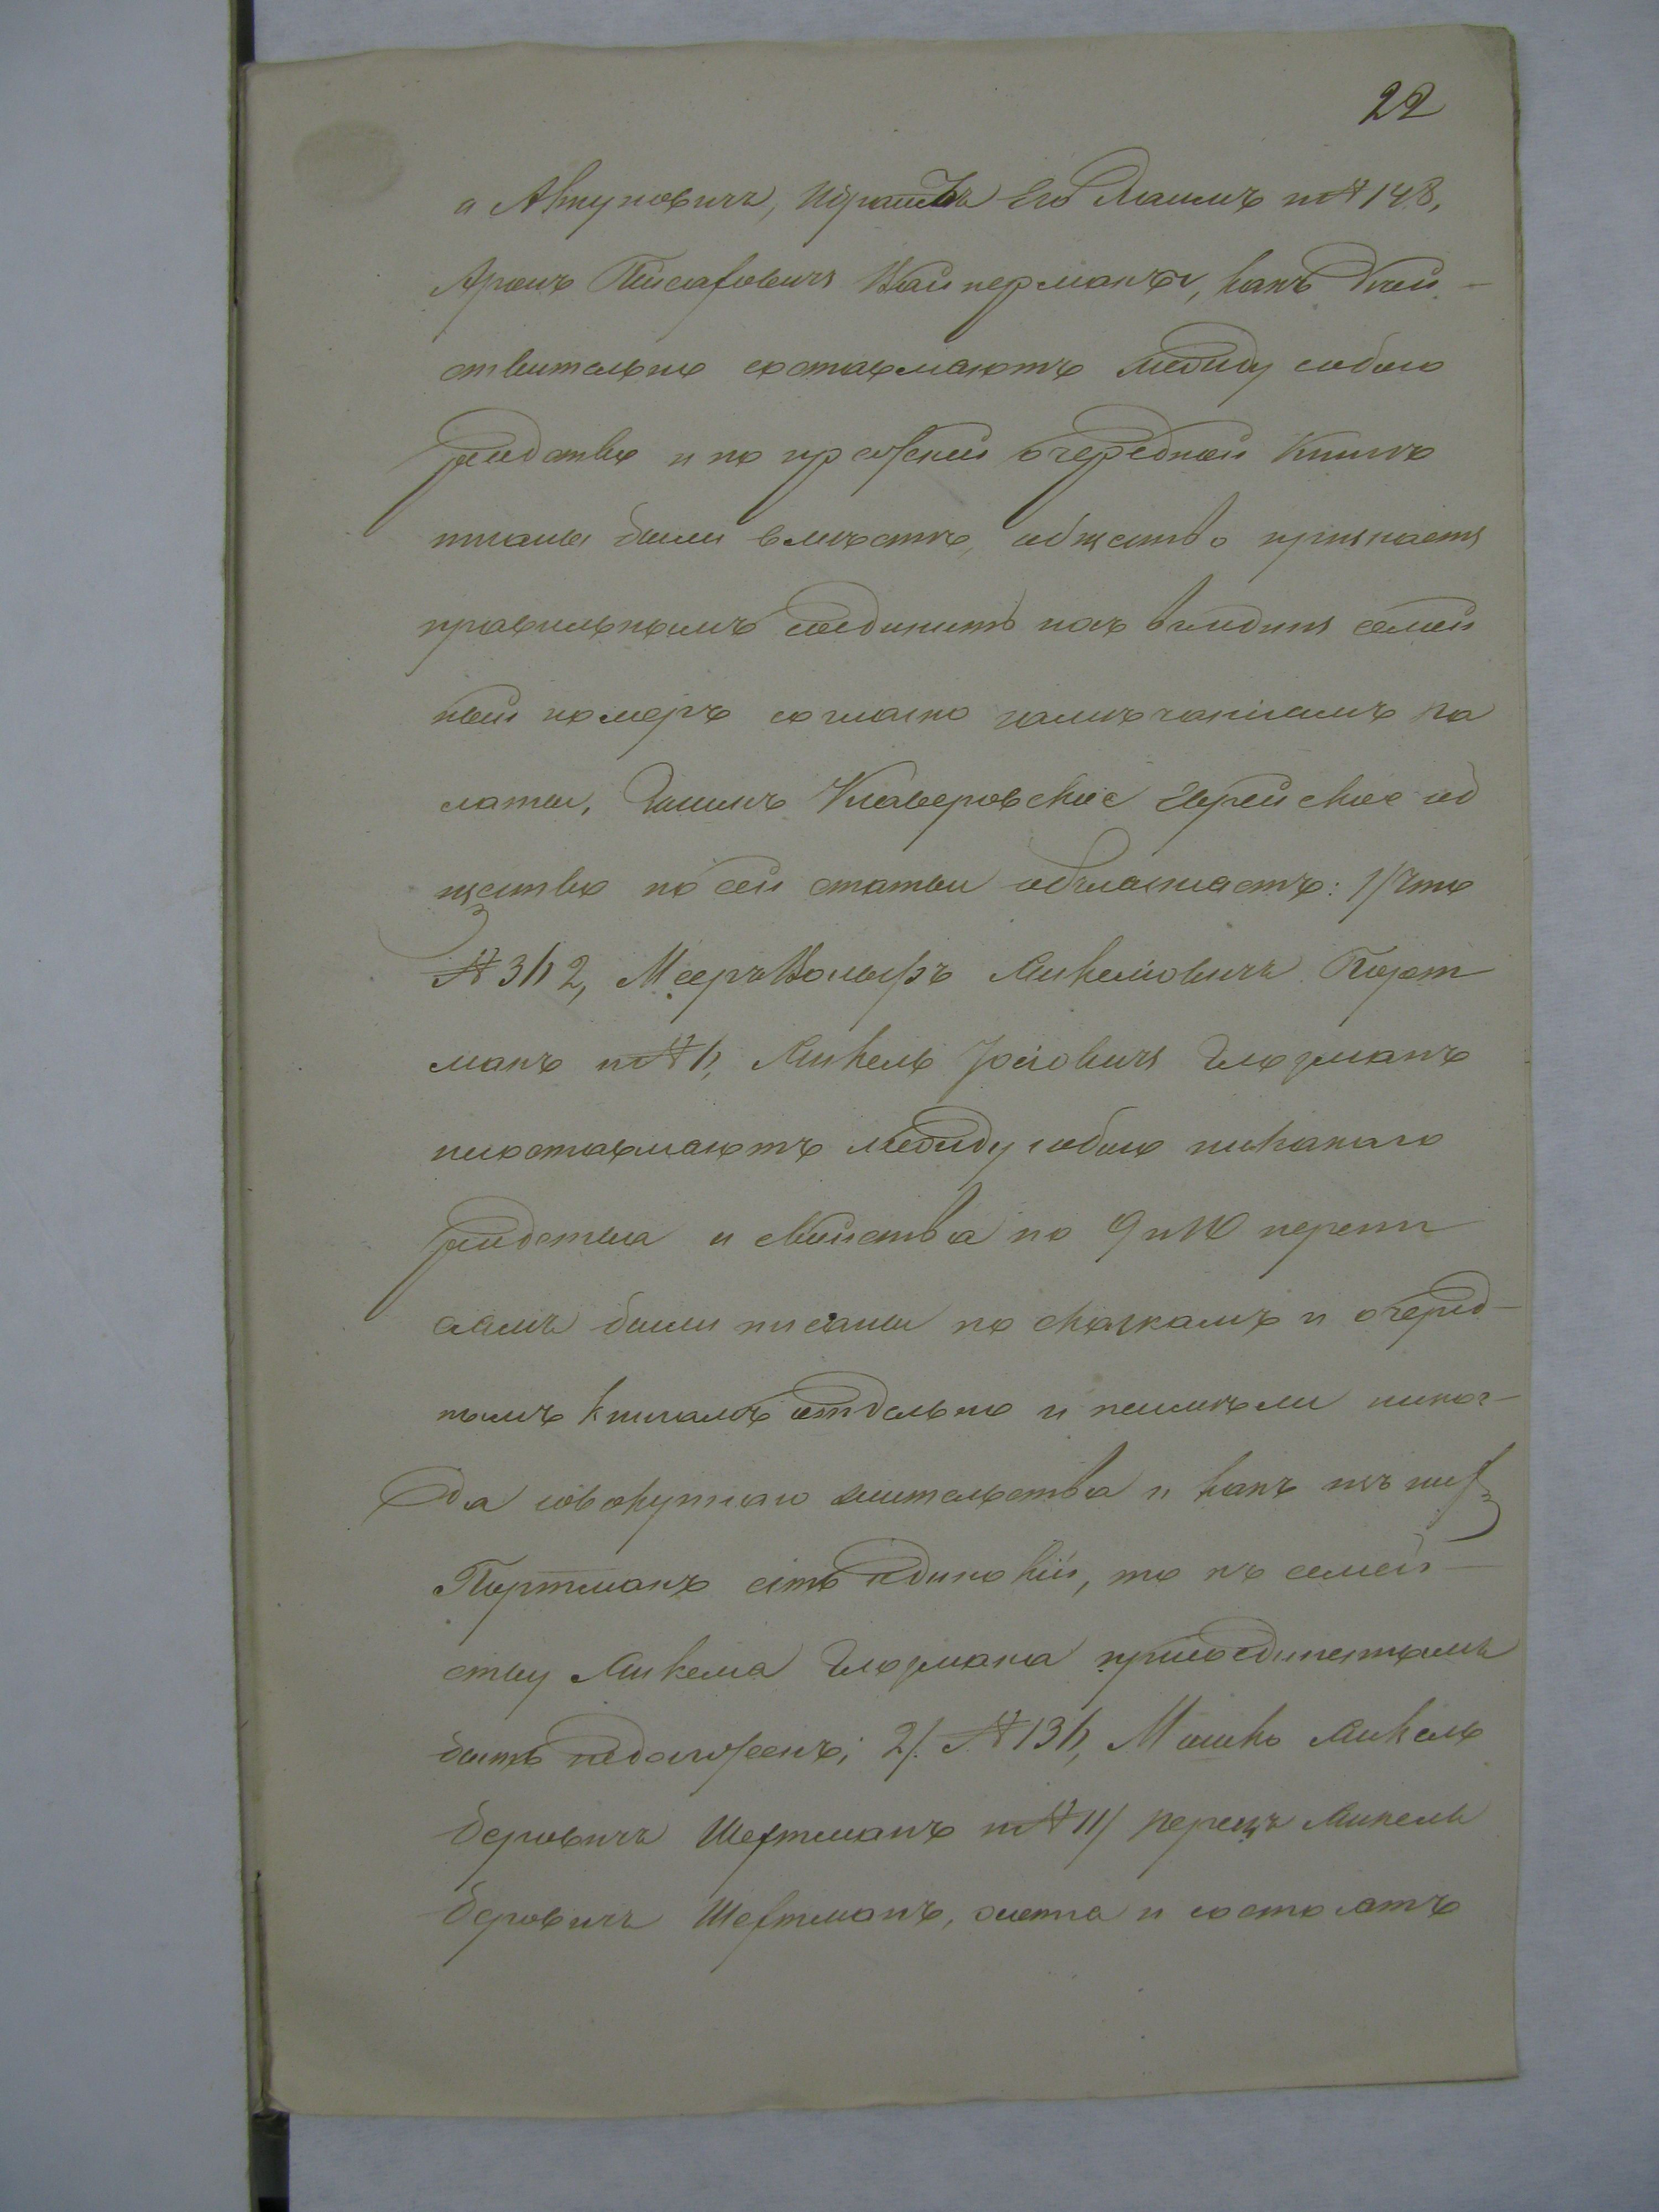 22
а Авнуновичъ, Израиль Его Машимъ и № 148,
Аронъ Пейсаховичъ Вайнерманъ, какъ дѣй-
ствительно составляютъ между собою
родство и по прежней очередной книгѣ
писаны были вмѣстѣ, общество признаетъ
правильнымъ соединить ихъ въ одинъ семей
ный номеръ согласно замѣчаніямъ Па
латы, Затѣмъ Клаверовское Еврейское об
щество по сей статьи объясняетъ: 1/ Что
№ 3/12, Мееръ Вольфъ Янкеліовичъ Порт
манъ и № /1, Янкель Іосіовичъ Глозманъ
несоставляютъ между собою никакаго
родства и свойства по 9 и 10 перепи
сямъ были писаны по сказкамъ и очеред-
нымъ книгамъ отдѣльно и неимѣли никог-
да совокупнаго жительства и какъ изъ нихъ
Портманъ есть одинокій, то къ семей-
ству Янкеля Глозмана присоединеннымъ
быть недолженъ; 2/. № 13/1, Мошко Янкель
Беровичъ Шехтманъ и № 11/ Перецъ Янкель
Беровичъ Шехтманъ, и состоятъ